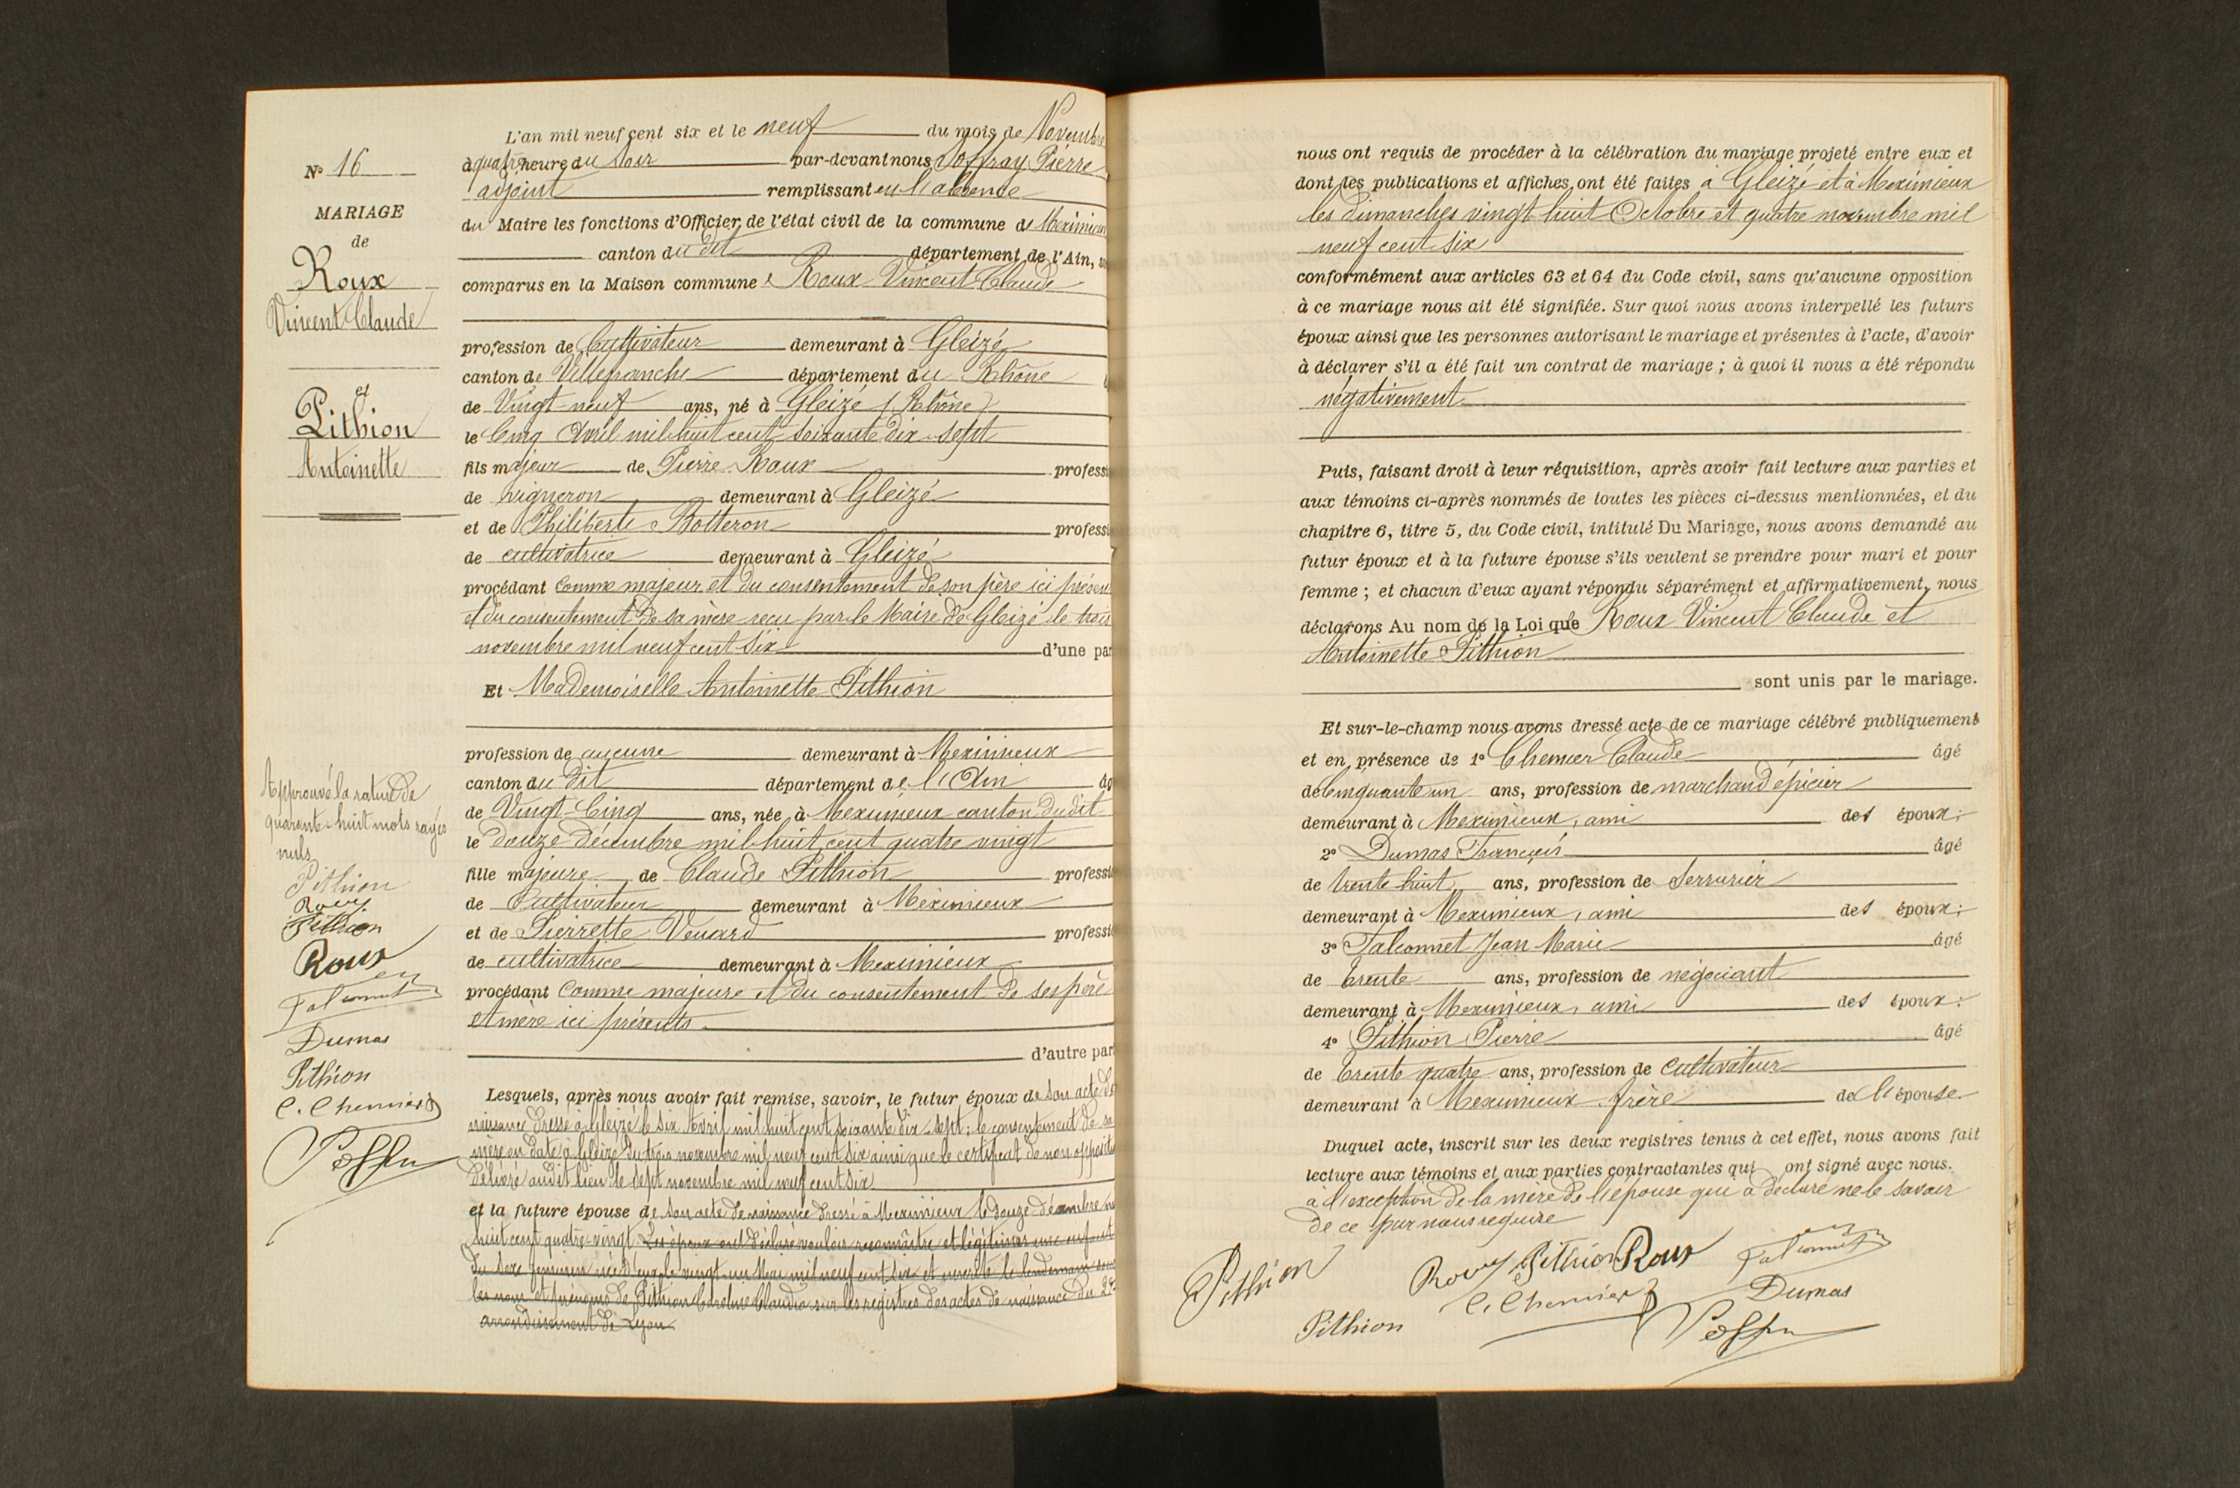 N° 16
MARIAGE
de
Roux
Vincent Claude
et
Pithion
Antoinette
Approuvé la rature de
quarante-huit mots rayés
nuls
Pithion
Roux
Pithion
Roux
Falconnet
Dumas
Pithion
C. Chemier
L'an mil neuf cent six et le neuf du mois de Novembre
à quatre heure du soir par-devant nous Joffray Pierre
adjoint remplissant en l'absence
du Maire les fonctions d'Officier de l'état civil de la commune de Meximieux
canton du dit département de l'Ain,
comparus en la Maison commune Roux Vincent Claude
profession de Cultivateur demeurant à Gleizé
canton de Villefranche département du Rhône
de Vingt-neuf ans, né à Gleizé (Rhône)
le Cinq Avril mil huit cent soixante dix-sept
fils majeur de Pierre Roux professi
de vigneron demeurant à Gleizé
et de Philiberte Botteron professi
de cultivatrice demeurant à Gleizé
procédant comme majeur et du consentement de son père ici présen
et du consentement de sa mère reçu par le Maire de Gleizé le trois
novembre mil neuf cent six d'une par
Et Mademoiselle Antoinette Pithion
profession de aucune demeurant à Meximieux
canton du dit département de l'Ain âg
de Vingt-Cinq ans, née à Meximieux canton du dit
le douze décembre mil huit cent quatre vingt
fille majeure de Claude Pithion professi
de Cultivateur demeurant à Meximieux
et de Pierrette Venard professi
de cultivatrice demeurant à Meximieux
procédant Comme majeure et du consentement de ses père
et mère ici présents.
d'autre par
Lesquels, après nous avoir fait remise, savoir, le futur époux de son acte de
naissance dressé à Gleizé le six Avril mil huit cent soixante dix-sept; le consentement de sa
mère en date à Gleizé du trois novembre mil neuf cent six ainsi que le certificat de non opposit
délivré audit lieu le sept novembre mil neuf cent six
et la future épouse de son acte de naissance dressé à Meximieux le douze décembre mil
huit cent quatre-vingt. Les époux ont déclaré vouloir reconnaître et légitimer une enfant
du sexe féminin née d'eux le vingt-un Mai mil neuf cent six et inscrite le lendemain sous
les nom et prénoms de Pithion Caroline Claudia sur les registres des actes de naissance du 2e
arrondissement de Lyon
nous ont requis de procéder à la célébration du mariage projeté entre eux et
dont les publications et affiches ont été faites à Gleizé et à Meximieux
les dimanches vingt huit Octobre et quatre novembre mil
neuf cent six
conformément aux articles 63 et 64 du Code civil, sans qu'aucune opposition
à ce mariage nous ait été signifiée. Sur quoi nous avons interpellé les futurs
époux ainsi que les personnes autorisant le mariage et présentes à l'acte, d'avoir
à déclarer s'il a été fait un contrat de mariage ; à quoi il nous a été répondu
négativement
Puis, faisant droit à leur réquisition, après avoir fait lecture aux parties et
aux témoins ci-après nommés de toutes les pièces ci-dessus mentionnées, et du
chapitre 6, titre 5, du Code civil, intitulé Du Mariage, nous avons demandé au
futur époux et à la future épouse s'ils veulent se prendre pour mari et pour
femme ; et chacun d'eux ayant répondu séparément et affirmativement, nous
déclarons Au nom de la Loi que Roux Vincent Claude et
Antoinette Pithion
sont unis par le mariage.
Et sur-le-champ nous avons dressé acte de ce mariage célébré publiquement
et en présence de 1° Chemier Claude âgé
de Cinquante un ans, profession de marchand épicier
demeurant à Meximieux, ami des époux;
2° Dumas François âgé
de trente huit ans, profession de Serrurier
demeurant à Meximieux, ami des époux;
3° Falconnet Jean Marie âgé
de trente ans, profession de négociant
demeurant à Meximieux, ami des époux;
4° Pithion Pierre âgé
de trente quatre ans, profession de Cultivateur
demeurant à Meximieux frère de l'épouse
Duquel acte, inscrit sur les deux registres tenus à cet effet, nous avons fait
lecture aux témoins et aux parties contractantes qui ont signé avec nous.
à l'exception de la mère de l'épouse qui a déclaré ne le savoir
de ce par nous requise
Pithion Roux Pithion Roux Falconnet
C. Chemier Dumas
Pithion